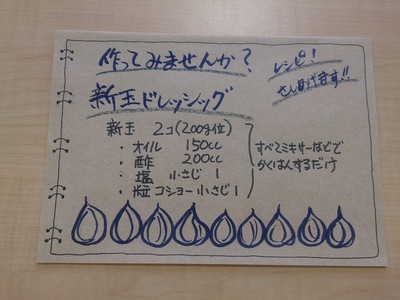 作ってみませんか?
レシピ!
さしあげます!!
新玉ドレッシング
新玉 2コ(200g位)
・オイル 150cc
・酢 200cc
・塩 小さじ1
・粒コショー小さじ1
すべてミキサーなどで
かくはんするだけ